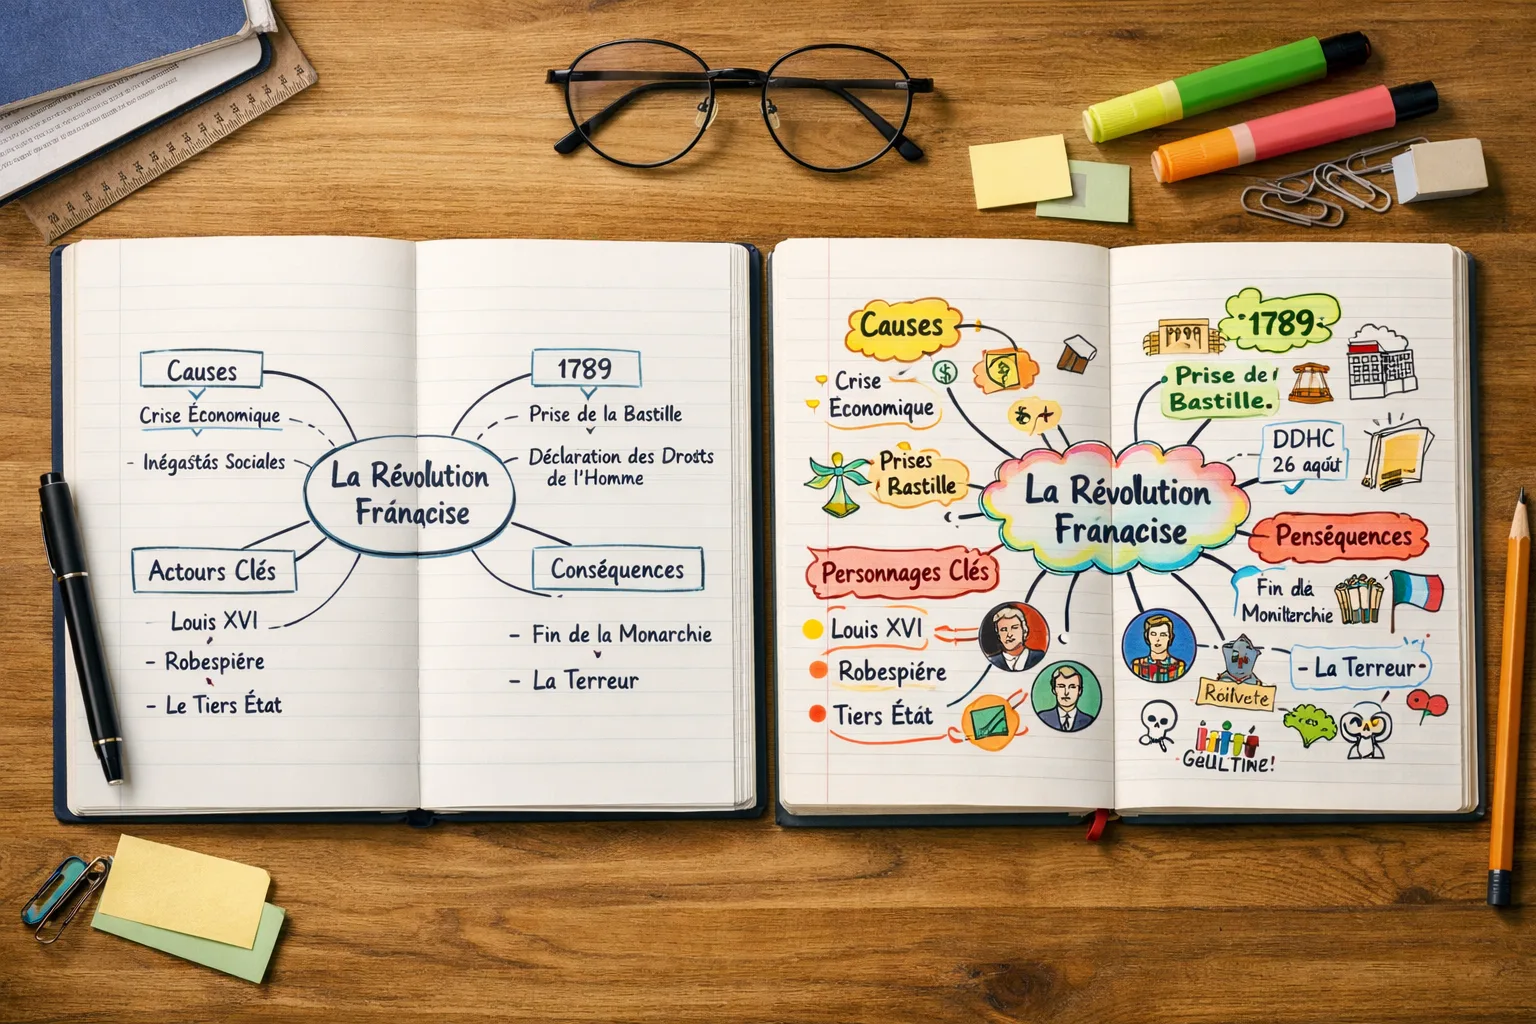 Causes
Crise Économique
- Inégastás Sociales
1789
Prise de la Bastille
Déclaration des Drosts
de l'Homme
La Révolution
Fránqcise
Actours Clés
Louis XVI
- Robespiére
- Le Tiers État
Conséquences
- Fin de la Monarchie
- La Terreur
Causes
Crise
Économique
Prises
Bastille
Personnages Clés
Louis XVI
Robespiére
Tiers État
La Révolution
Franącise
1789
Prise de
Bastille.
DDHC
26 aqút
Penséquences
Fin dla
Moniłterchie
- La Terreur
Roilvete
GéULTINE!